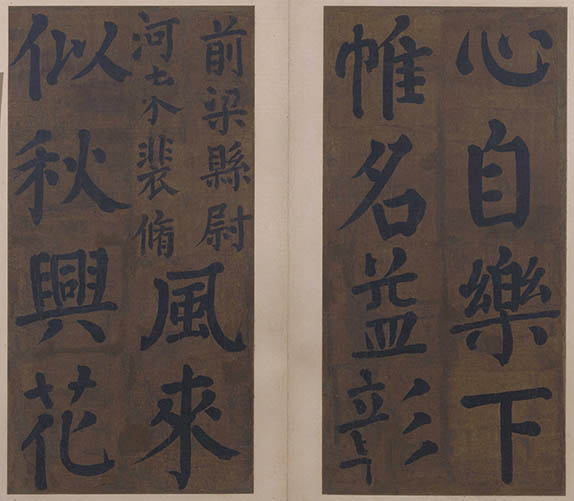 心自樂下
帷名益彰
前梁縣尉
河東裴脩
風來
似秋興花